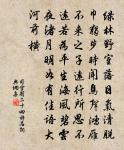 綠林野室落日氣清脫
巾獨步時聞鳥聲鴻雁
不來之子遠行所思不
遠若為平生海風碧雲
夜渚月明如有佳語大
河前橫
司空圖二十四詩品